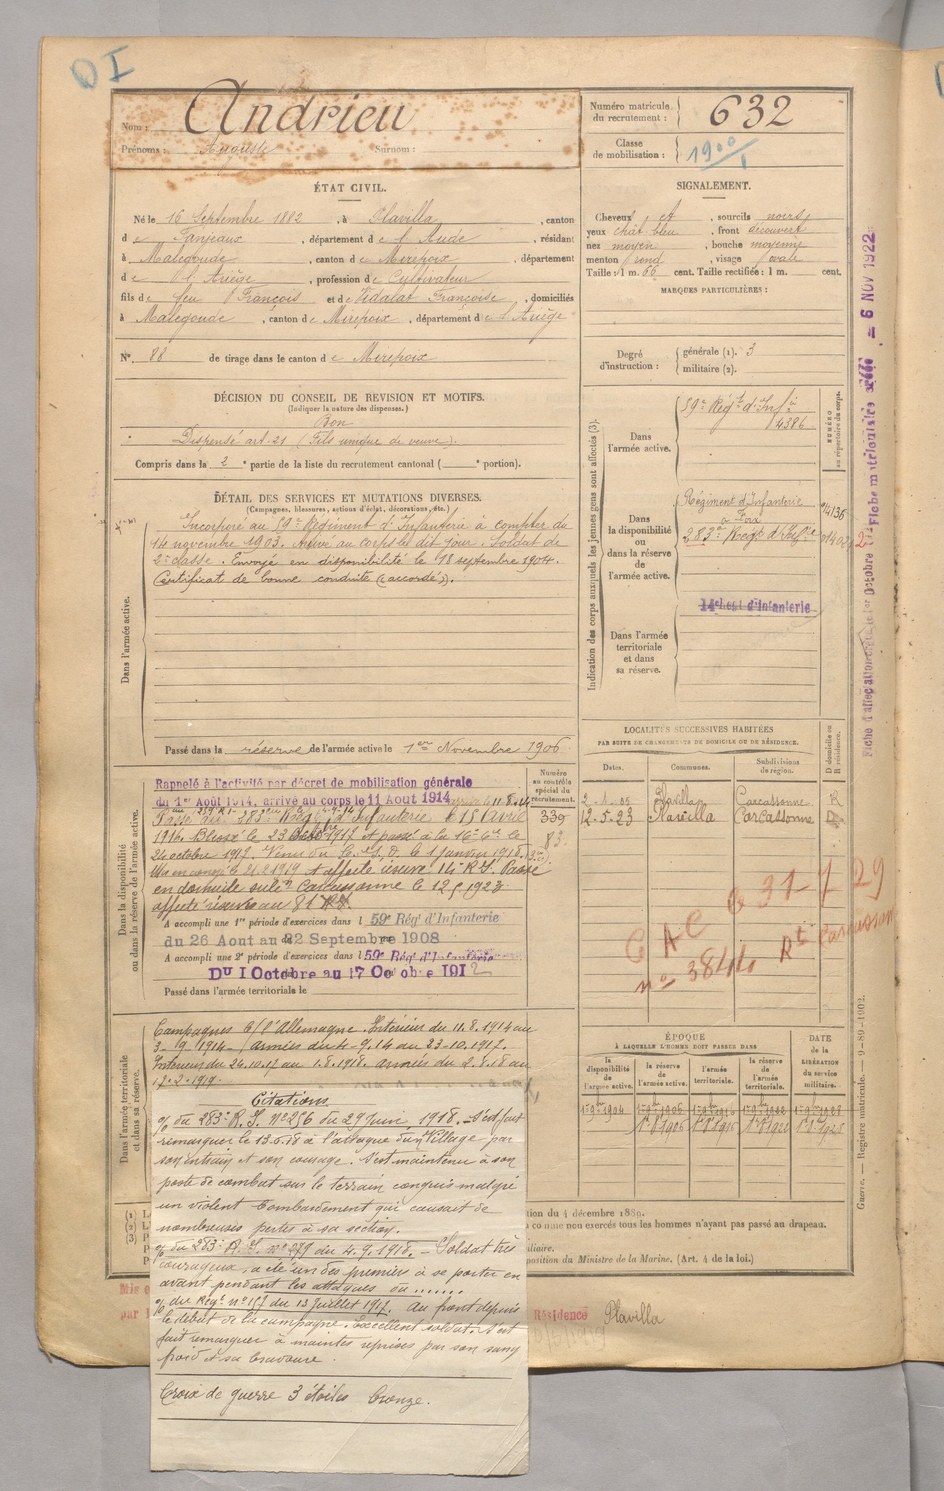 DI
Nom : Andrieu
Prénoms : Auguste Surnom :
Numéro matricule du recrutement : 632
Classe de mobilisation : 1900
ÉTAT CIVIL.
Né le 16 Septembre 1882, à Plavilla, canton
de Fanjeaux, département de l'Aude, résidant
à Malegoude, canton de Mirepoix, département
de l'Ariège, profession de Cultivateur
fils de feu François et de Vidalat Françoise, domiciliés
à Malegoude, canton de Mirepoix, département de l'Ariège
N° 88 de tirage dans le canton de Mirepoix
SIGNALEMENT.
Cheveux et, sourcils noirs
yeux chât. bleu, front découvert
nez moyen, bouche moyenne
menton rond, visage ovale
Taille : 1 m. 66 cent. Taille rectifiée : 1 m. cent.
MARQUES PARTICULIÈRES :
Degré d'instruction : générale (1). 3
militaire (2).
DÉCISION DU CONSEIL DE REVISION ET MOTIFS.
(Indiquer la nature des dispenses.)
Bon
Dispensé art. 21 (Fils unique de veuve).
Compris dans la 2e partie de la liste du recrutement cantonal ( e portion).
DÉTAIL DES SERVICES ET MUTATIONS DIVERSES.
(Campagnes, blessures, actions d'éclat, décorations, etc.)
Dans l'armée active.
Incorporé au 59e Régiment d'Infanterie à compter du
14 novembre 1903. Arrivé au corps le dit jour. Soldat de
2e classe. Envoyé en disponibilité le 18 septembre 1904.
Certificat de bonne conduite (accordé).
Passé dans la réserve de l'armée active le 1er Novembre 1906
Indication des corps auxquels les jeunes gens sont affectés (3).
NUMÉRO au répertoire du corps.
Dans l'armée active.
59e Régt d'Infie
4386
Dans la disponibilité ou dans la réserve de l'armée active.
Régiment d'Infanterie
à Foix
283e Régt d'Infie
14e Regt d'Infanterie
Dans l'armée territoriale et dans sa réserve.
Dans la disponibilité ou dans la réserve de l'armée active.
Numéro au contrôle spécial du recrutement.
339
83
Rappelé à l'activité par décret de mobilisation générale
du 1er Août 1914, arrivé au corps le 11 Aout 1914
Passé au 283e Régt d'Infanterie le 15 Avril
1916. Blessé le 23 Octobre 1917 et passé à la 16e Cie le
24 octobre 1917. le 1 janvier 1918.
Mis en congé le 21.2.1919 et affecté réserve 14e R.I. Passé
en domicile sub.on Carcassonne le 12.5.1923.
affecté réserve au 81 R.I.
A accompli une 1re période d'exercices dans l 59e Rég' d'Infanterie
du 26 Aont au 22 Septembre 1908
A accompli une 2e période d'exercices dans l 59e Rég' d'Infanterie
DU 1 Octobre au 17 Octobre 1912
Passé dans l'armée territoriale le
LOCALITÉS SUCCESSIVES HABITÉES
PAR SUITE DE CHANGEMENTS DE DOMICILE OU DE RÉSIDENCE.
Dates. Communes. Subdivisions de région. D domicile ou R résidence.
2.1.05 Plavilla Carcassonne R
12.5.23 Plavilla Carcassonne D
n° 3844 Rt Carcassonne
Dans l'armée territoriale et dans sa réserve.
Campagnes c/ l'Allemagne. Intérieur du 11.8.1914 au
3.9.1914 - Armées du 4.9.14 au 23.10.1917.
Intérieur du 24.10.17 au 1.8.1918. Armées du 2.8.18 au
Citations
% du 283e R.I. n° 256 du 29 Juin 1918. - S'est fait
remarquer le 13.6.18 à l'attaque d'un village par
son entrain et son courage. S'est maintenu à son
poste de combat sur le terrain conquis malgré
un violent bombardement qui causait de
nombreuses pertes à sa section.
% du 283e R.I. n° 279 du 4.9.1918. - Soldat très
courageux, a été un des premiers à se porter en
avant pendant les attaques du .......
% du Régt n° 157 du 13 Juillet 1917. Au front depuis
le début de la campagne. Excellent soldat. S'est
fait remarquer à maintes reprises par son sang
froid et sa bravoure.
Croix de guerre 3 étoiles bronze.
ÉPOQUE
À LAQUELLE L'HOMME DOIT PASSER DANS
la disponibilité de l'armée active. la réserve de l'armée active. l'armée territoriale. la réserve de l'armée territoriale.
DATE de la LIBÉRATION du service militaire.
tion du 4 décembre 1889.
co mme non exercés tous les hommes n'ayant pas passé au drapeau.
iliaire.
position du Ministre de la Marine. (Art. 4 de la loi.)
Résidence Plavilla
Guerre. — Registre matricule. — 9-89-1902.
6 NOV 1922